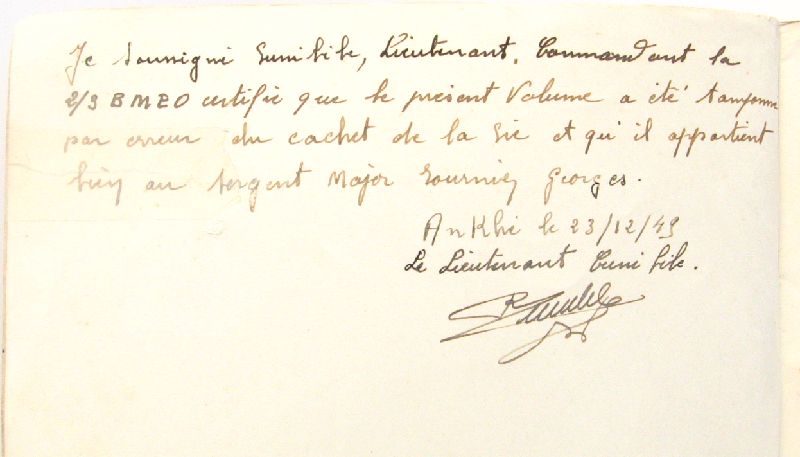 Je soussigné Cunibile, Lieutenant, Commandant la
2/3 BMEO certifie que le présent Volume a été tamponné
par erreur du cachet de la Sie et qu'il appartient
bien au sergent Major Georges.
An Khé le 23/12/49
Le Lieutenant Cunibile.